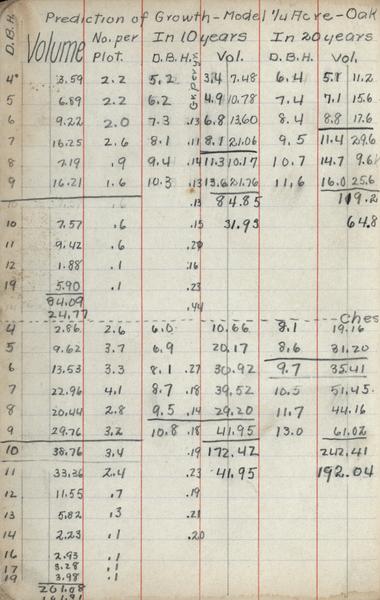 Prediction of Growth - Model 1/4 Acre - Oak
D.B.H. Volume No. per Plot. In 10 years In 20 years
D.B.H. Gr. Per yr. Vol. D.B.H. Vol.
4" 3.59 2.2 5.2 3.4 7.48 6.4 5.1 11.2
5 6.89 2.2 6.2 4.9 10.78 7.4 7.1 15.6
6 9.22 2.0 7.3 .13 6.8 13.60 8.4 8.8 17.6
7 16.25 2.6 8.1 .11 8.1 21.06 9.5 11.4 29.6
8 7.19 .9 9.4 .14 11.3 10.17 10.7 14.7 9.6
9 16.21 1.6 10.3 .13 13.6 21.76 11.6 16.0 25.6
.13 84.85 119.2
10 7.57 .6 .15 31.93 64.8
11 9.42 .6 .20
12 1.88 .1 .16
19 5.90 .1 .23
84.09 .44
24.77 Ches
4 2.86 2.6 6.0 10.66 8.1 19.16
5 9.62 3.7 6.9 20.17 8.6 31.20
6 13.53 3.3 8.1 .27 30.92 9.7 35.41
7 22.96 4.1 8.7 .18 39.52 10.5 51.45
8 20.44 2.8 9.5 .14 29.20 11.7 44.16
9 29.76 3.2 10.8 .18 41.95 13.0 61.02
10 38.76 3.4 .19 172.42 242.41
11 33.36 2.4 .23 41.95 192.04
12 11.55 .7 .19
13 5.82 .3 .21
14 2.23 .1 .20
16 2.93 .1
17 3.28 .1
19 3.98 .1
201.08